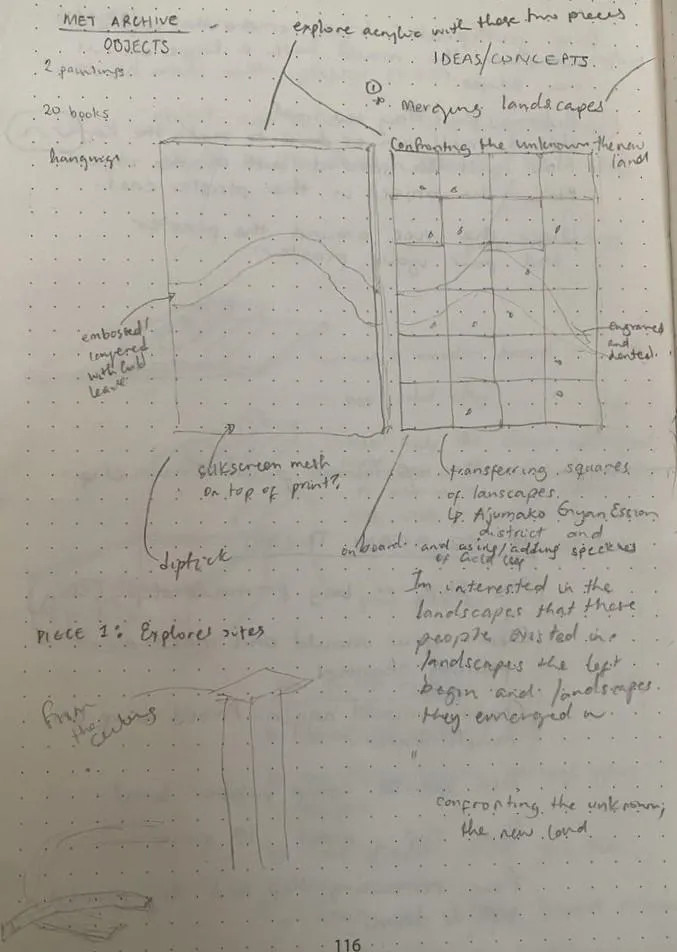 MET ARCHIVE
OBJECTS
2 paintings
20 books
hangings
explore acrylic with these two pieces
IDEAS/CONCEPTS
①
merging landscapes
Confronting the unknown, the new
land
embosted/
layered
with Gold
Leave
engraved
and
dented
silkscreen mesh
on top of print?
diptick
transferring squares
of lanscapes
Ajumako Enyan Essiam
district and
on board and using/adding speckles
of Gold leaf
Im interested in the
landscapes that these
people existed in
landscapes the left
begin and landscapes
they emerged in
PIECE 1: Explores sites
From
the
ceiling
confronting the unknown;
the new land
116